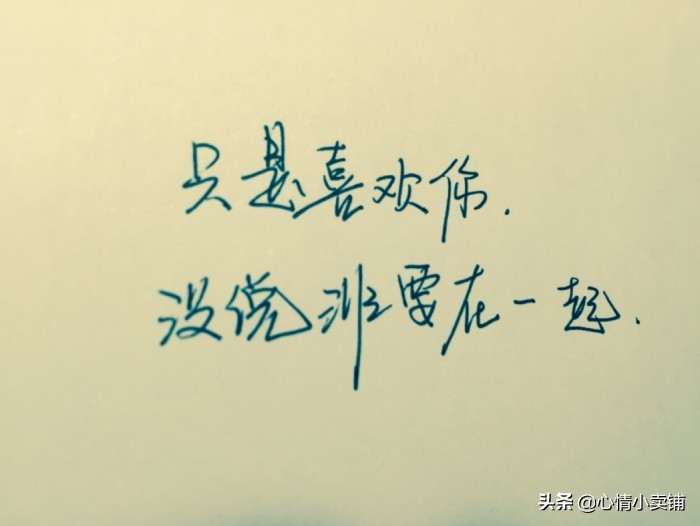 只是喜欢你.
没说非要在一起.
头条 @心情小卖铺